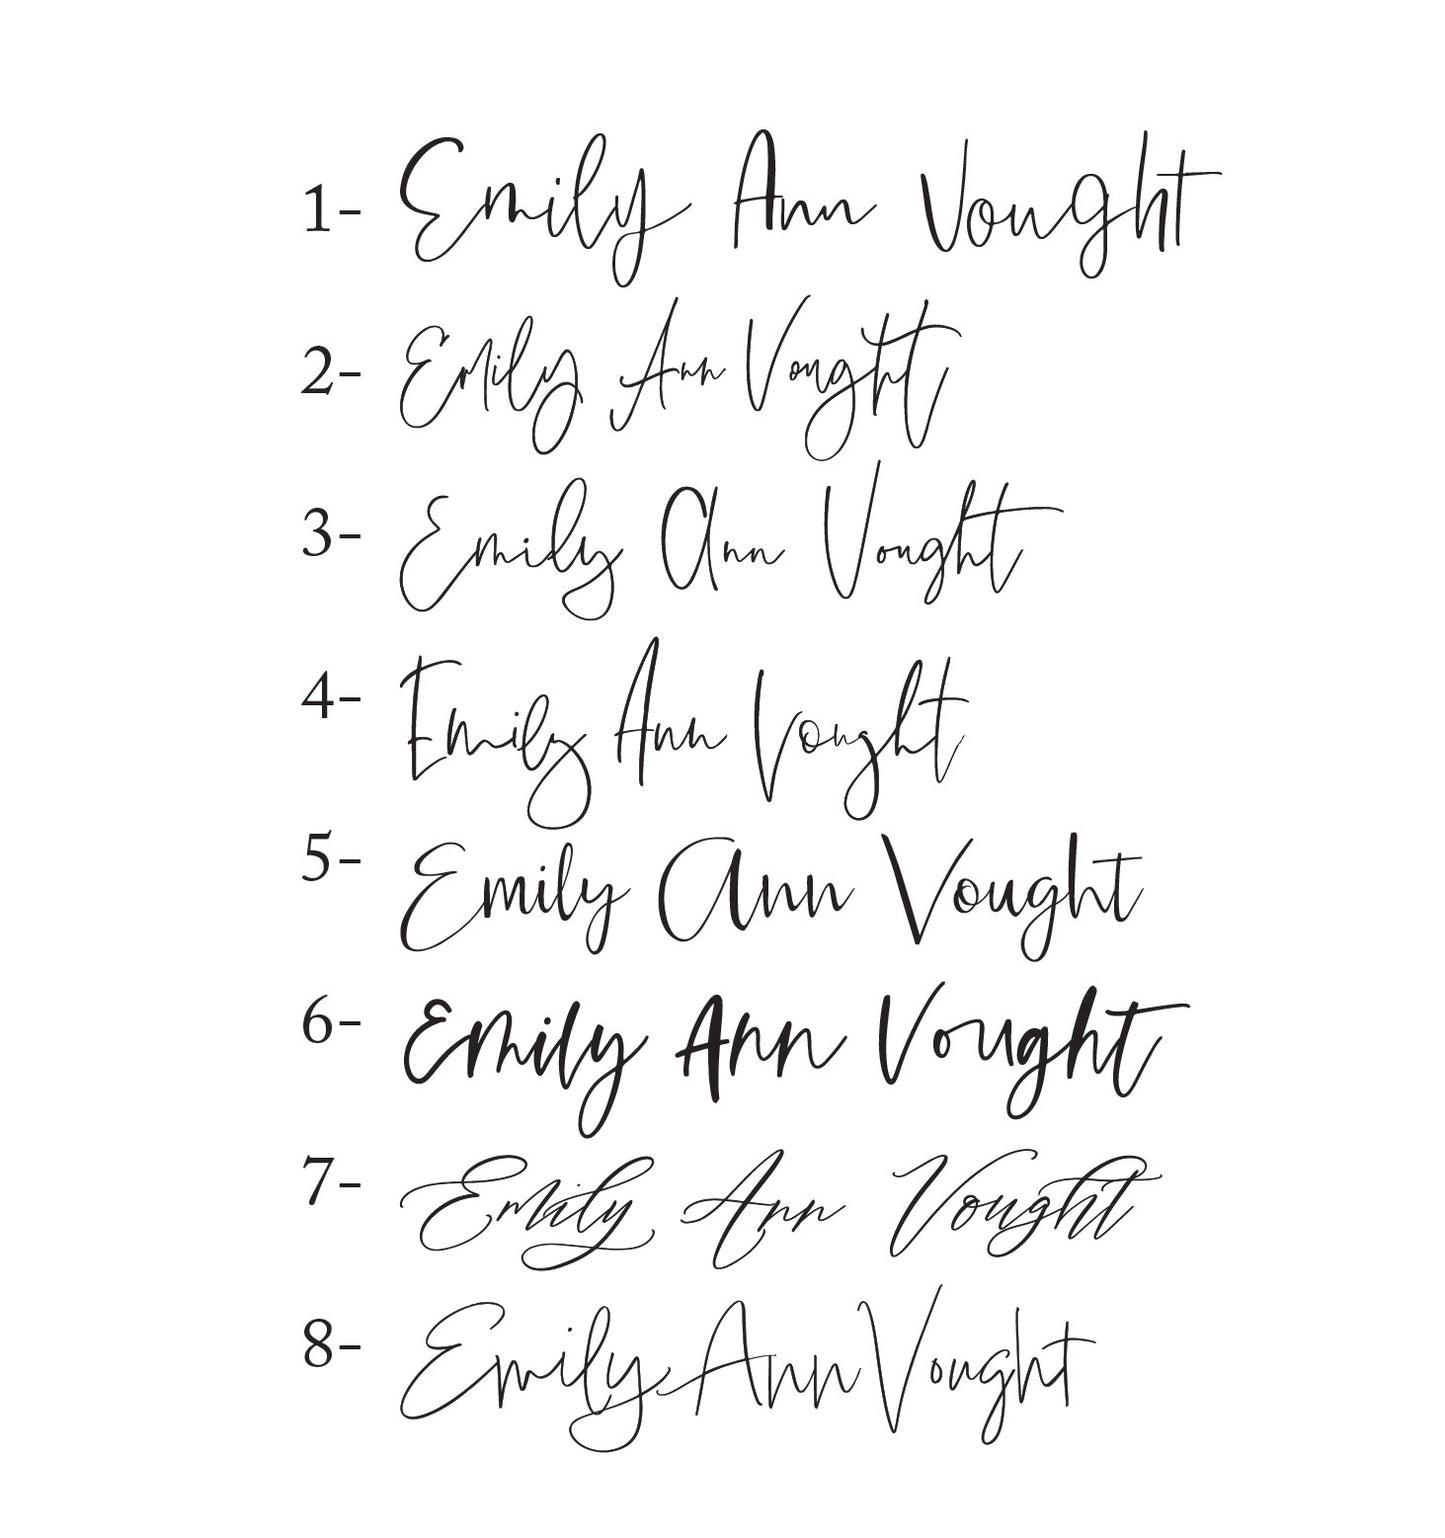 1- Emily Ann Vought
2- Emily Ann Vought
3- Emily Ann Vought
4- Emily Ann Vought
5- Emily Ann Vought
6- Emily Ann Vought
7- Emily Ann Vought
8- Emily Ann Vought